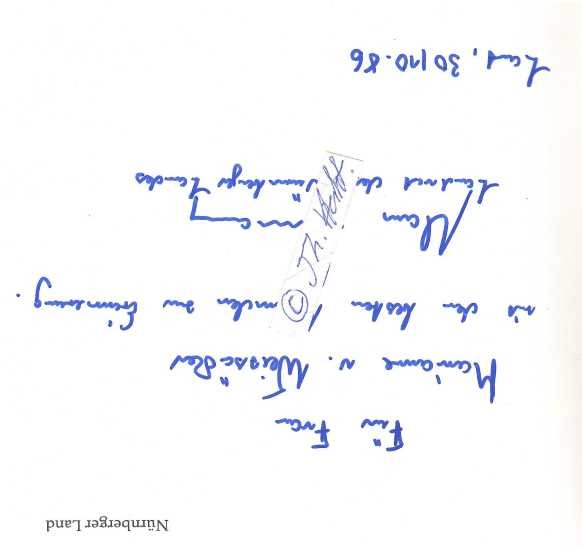 Nürnberger Land
Für Frau
Marianne v. Weissäcker
mit den besten Wünschen zur Erinnerung.
Klaus
Landrat des Nürnberger Landes
© Th. Hecht.
Lauf, 30/10.86